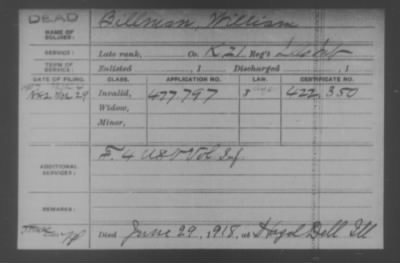 DEAD
NAME OF SOLDIER: Billman, William
SERVICE: Late rank, Co. K 21 Reg't Ills Inf
TERM OF SERVICE: Enlisted , 1 Discharged , 1
DATE OF FILING. CLASS. APPLICATION NO. LAW. CERTIFICATE NO.
Invalid, 477797 422.350
Widow,
Minor,
ADDITIONAL SERVICES: F. 4 US V Vol Inf
REMARKS:
Died June 29, 1918, at Hazel Dell Ill